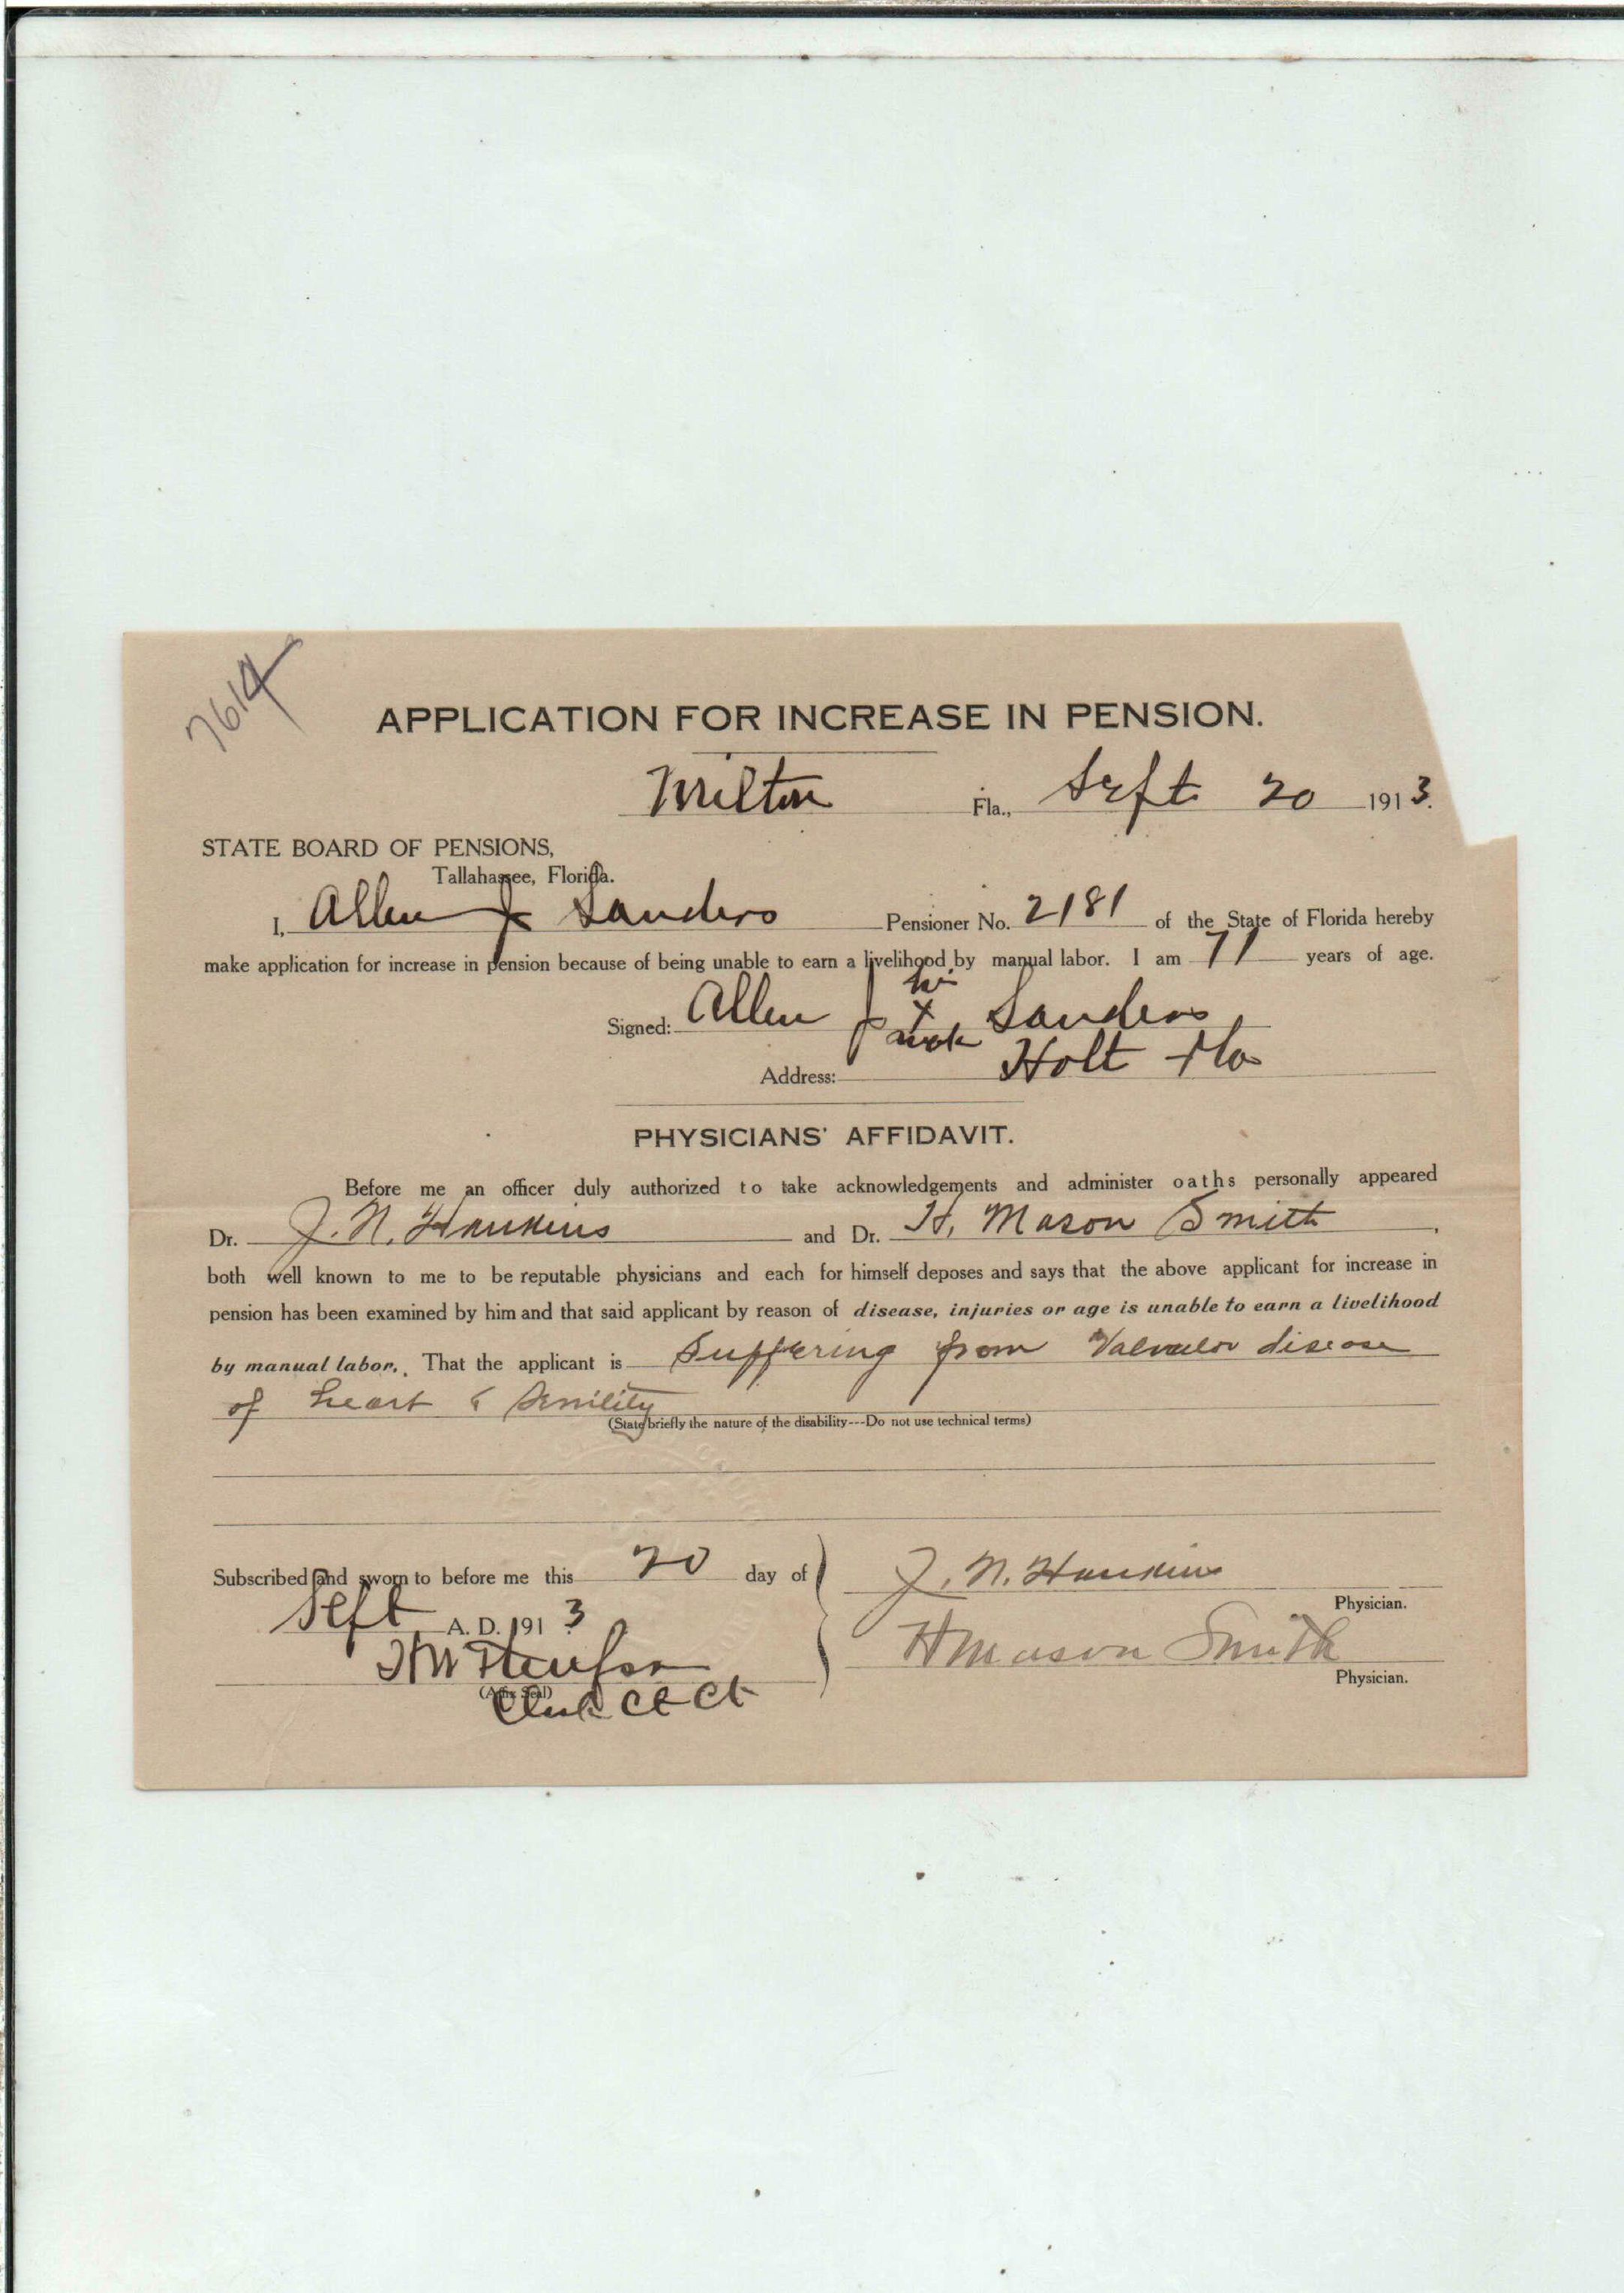 7614
APPLICATION FOR INCREASE IN PENSION.
Milton Fla., Sept 20 1913.
STATE BOARD OF PENSIONS,
Tallahassee, Florida.
I, Allen J Sanders Pensioner No. 2181 of the State of Florida hereby
make application for increase in pension because of being unable to earn a livelihood by manual labor. I am 71 years of age.
his
Signed: Allen J x Sanders
mark
Address: Holt Fla
PHYSICIANS' AFFIDAVIT.
Before me an officer duly authorized to take acknowledgements and administer oaths personally appeared
Dr. J. N. Hankins and Dr. H. Mason Smith.
both well known to me to be reputable physicians and each for himself deposes and says that the above applicant for increase in
pension has been examined by him and that said applicant by reason of disease, injuries or age is unable to earn a livelihood
by manual labor. That the applicant is Suffering from Valvular disease
of heart & Senility
(State briefly the nature of the disability---Do not use technical terms)
Subscribed and sworn to before me this 20 day of
Sept A. D. 1913
J. N. Hankins
Physician.
H Mason Smith
Physician.
(Affix Seal)
Clerk Ct Ct